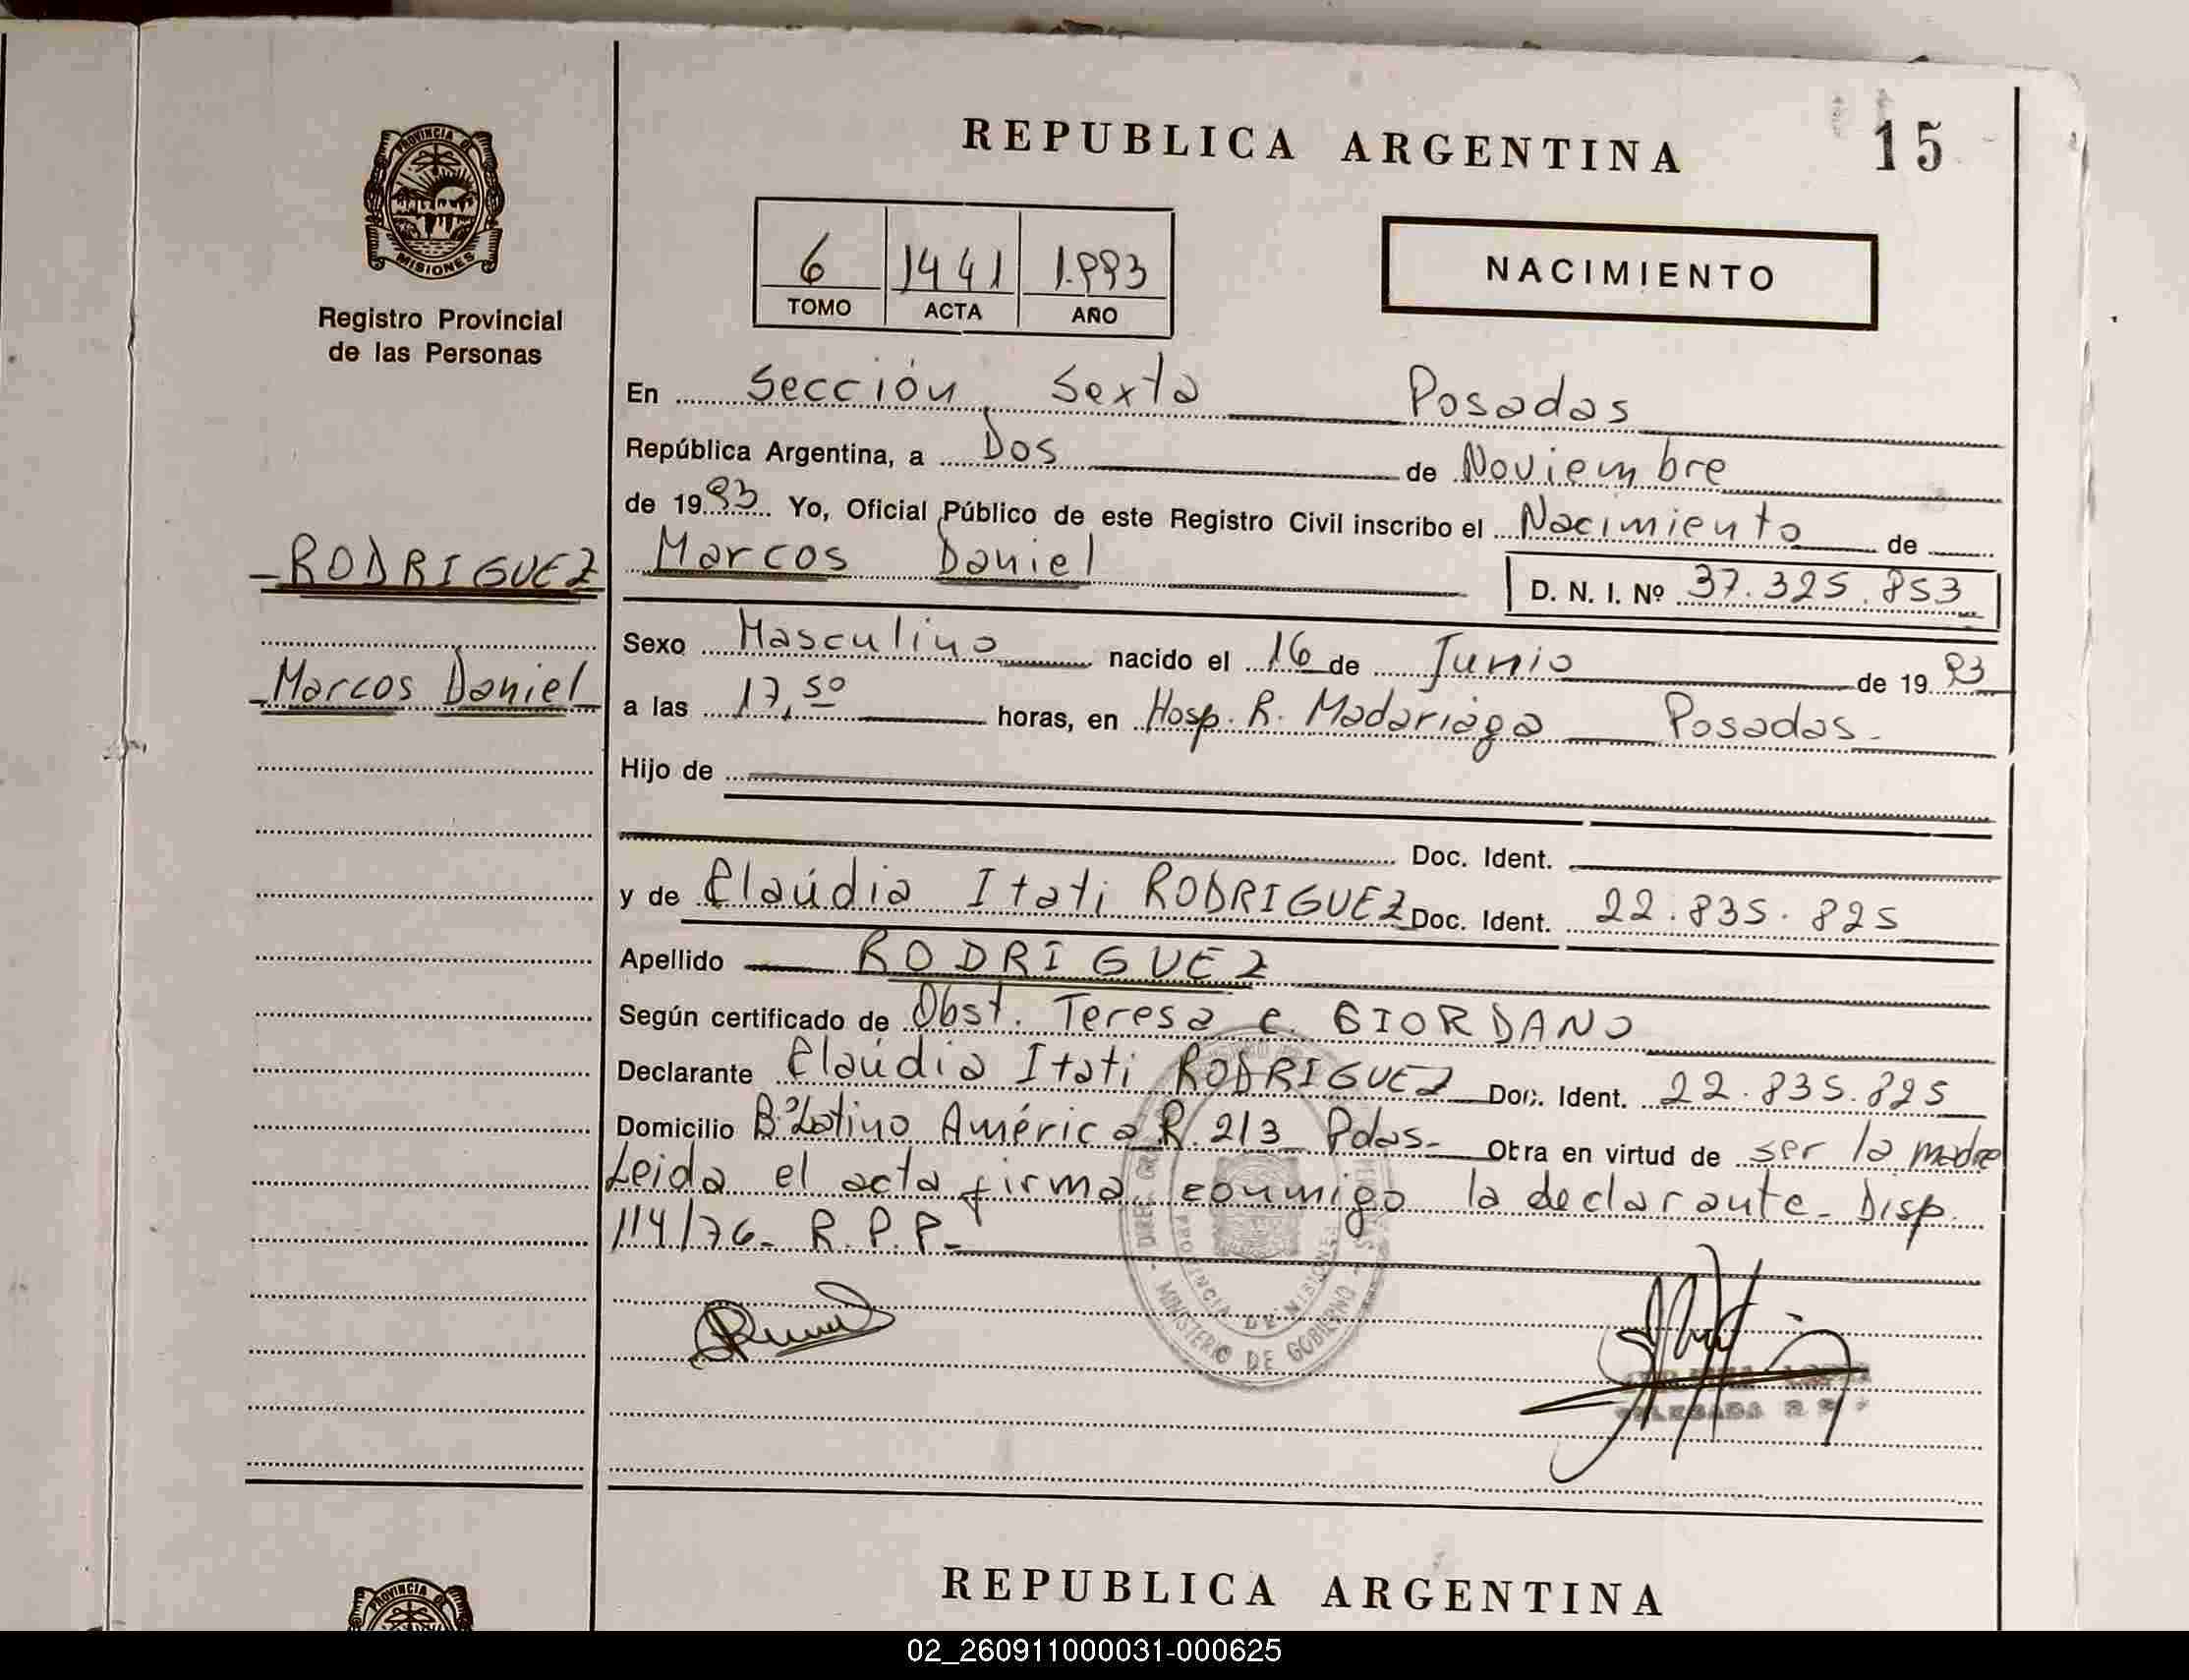 REPUBLICA ARGENTINA
15
PROVINCIA DE
MISIONES
Registro Provincial
de las Personas
6 1441 1.993
TOMO ACTA AÑO
NACIMIENTO
En Sección Sexta Posadas
República Argentina, a Dos de Noviembre
de 1993 Yo, Oficial Público de este Registro Civil inscribo el Nacimiento de
RODRIGUEZ
Marcos Daniel
Marcos Daniel
D. N. I. Nº 37.325.853
Sexo Masculino nacido el 16 de Junio de 1993
a las 17,50 horas, en Hosp. R. Madariaga Posadas.
Hijo de
Doc. Ident.
y de Claúdia Itati RODRIGUEZ Doc. Ident. 22.835.825
Apellido RODRIGUEZ
Según certificado de Obst. Teresa C. GIORDANO
Declarante Claúdia Itati RODRIGUEZ Doc. Ident. 22.835.825
Domicilio Bº Latino América R. 213 Pdas- Obra en virtud de ser la madre
Leida el acta firma conmigo la declarante- Disp.
114/76- R.P.P-
PROVINCIA DE MISIONES
MINISTERIO DE GOBIERNO
DELEGADA
PROVINCIA
REPUBLICA ARGENTINA
02_260911000031-000625